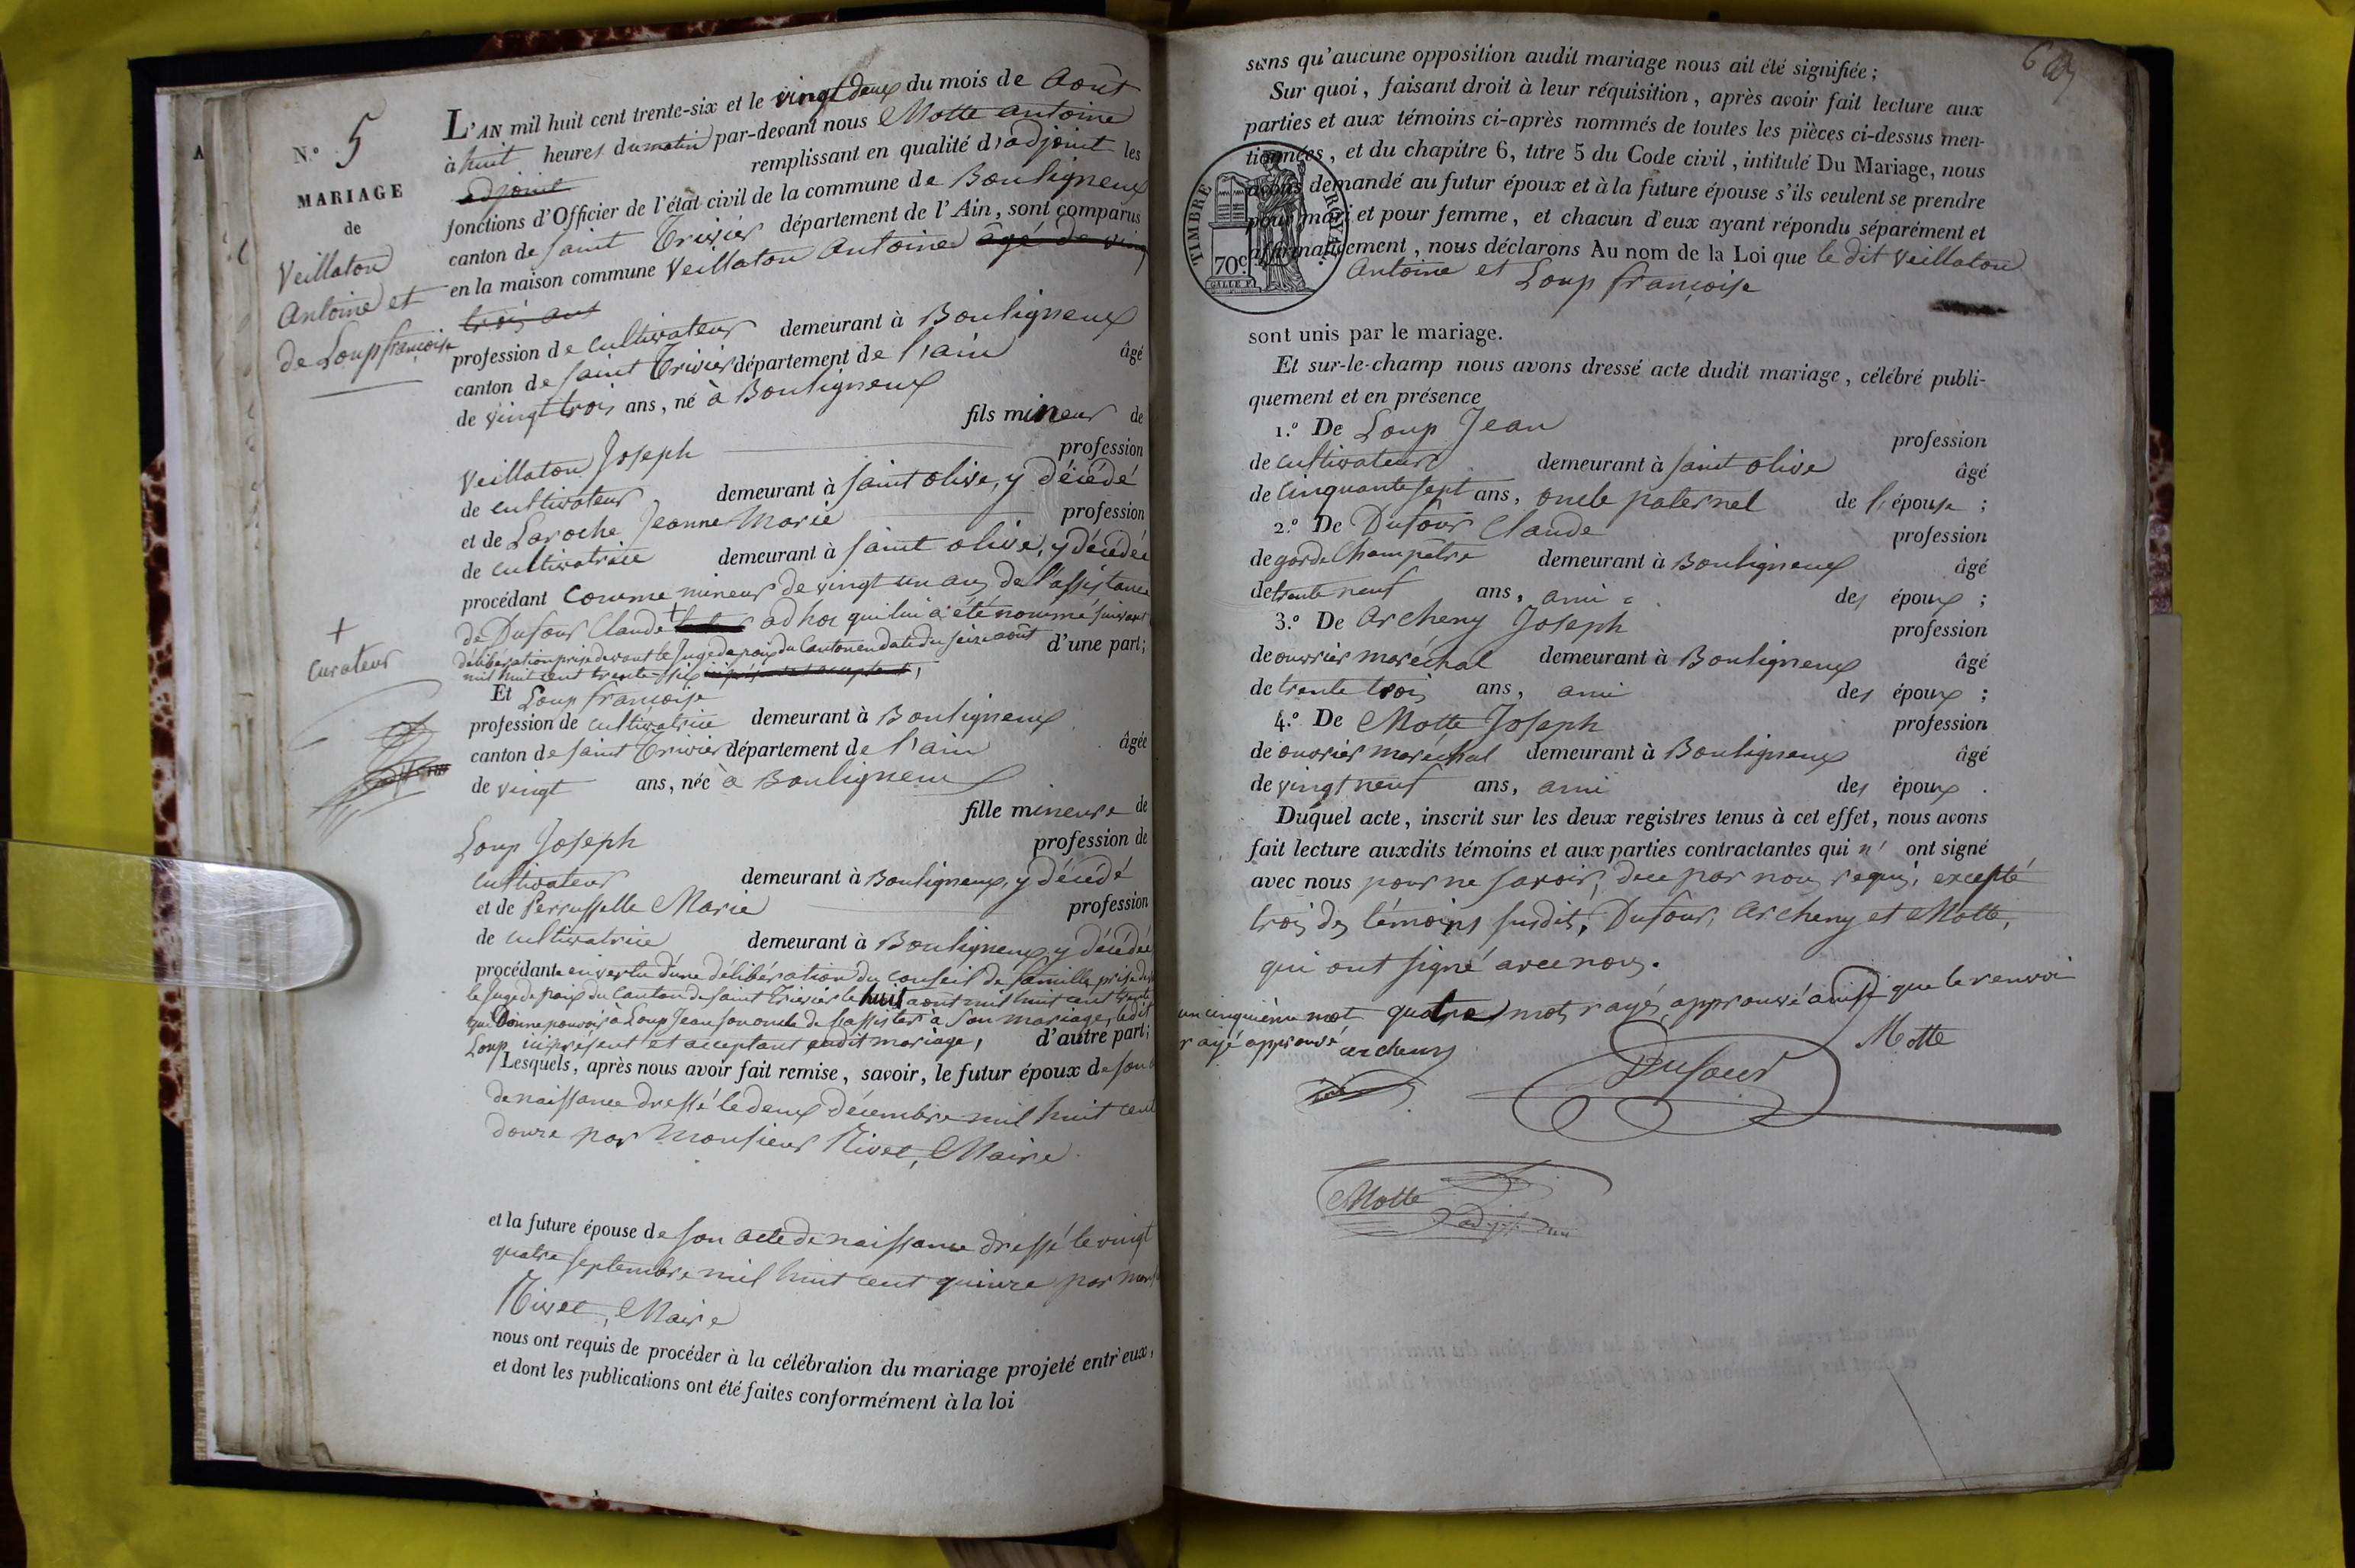 N.º 5
MARIAGE
de
Veillaton
Antoine et
de Loup françoise
L'AN mil huit cent trente-six et le vingt deux du mois de Aout
à huit heures du matin par-devant nous Motte Antoine
adjoint remplissant en qualité d'adjoint les
fonctions d'Officier de l'état civil de la commune de Bouligneux
canton de saint Trivier département de l'Ain, sont comparus
en la maison commune Veillaton Antoine âgé de ving
trois ans
profession de cultivateur demeurant à Bouligneux
canton de saint Trivier département de l'ain âgé
de vingt trois ans, né à Bouligneux
fils mineur de
Veillaton Joseph profession
de cultivateur, demeurant à saint olive, y décédé
et de Laroche Jeanne Marie profession
de cultivatrice demeurant à saint olive, y décédée
procédant comme mineur de vingt un ans de l'assistance
de Dufour Claude + ad hoc qui lui a été nommé suivant
délibération prise devant le Juge de paix du Canton en date du seize aout d'une part;
mil huit cent trente-six ici présent et acceptant,
+
curateur
Et Loup françoise
profession de cultivatrice demeurant à Bouligneux
canton de saint Trivier département de l'ain âgée
de vingt ans, née à Bouligneux
fille mineure de
Loup Joseph profession de
cultivateur demeurant à Bouligneux, y décédé
et de Perrusselle Marie profession
de cultivatrice demeurant à Bouligneux y décédée
procédante en vertu d'une délibération du conseil de famille prise
le Juge de paix du Canton de saint Trivier le huit aout mil huit cent trente
qui Donne pouvoir à Loup Jean son oncle de l'assister à son mariage, le dit
Loup ici présent et acceptant audit mariage, d'autre part;
Lesquels, après nous avoir fait remise, savoir, le futur époux de son
de naissance dressé le deux décembre mil huit cent
douze par Monsieur Nivet, Maire
et la future épouse de son acte de naissance dressé le vingt
quatre septembre mil huit cent quinze par
Nivet, Maire
nous ont requis de procéder à la célébration du mariage projeté entr'eux,
et dont les publications ont été faites conformément à la loi
sans qu'aucune opposition audit mariage nous ait été signifiée;
Sur quoi, faisant droit à leur réquisition, après avoir fait lecture aux
parties et aux témoins ci-après nommés de toutes les pièces ci-dessus men-
tionnées, et du chapitre 6, titre 5 du Code civil, intitulé Du Mariage, nous
avons demandé au futur époux et à la future épouse s'ils veulent se prendre
pour mari et pour femme, et chacun d'eux ayant répondu séparément et
affirmativement, nous déclarons Au nom de la Loi que le dit Veillaton
Antoine et Loup françoise
TIMBRE ROYAL
70c
sont unis par le mariage.
Et sur-le-champ nous avons dressé acte dudit mariage, célébré publi-
quement et en présence
1.º De Loup Jean profession
de cultivateur demeurant à saint olive âgé
de cinquante sept ans, oncle paternel de l'épouse;
2.º De Dufour Claude profession
de garde Champêtre demeurant à Bouligneux âgé
de trente neuf ans, ami des époux;
3.º De Archeny Joseph profession
de ouvrier maréchal demeurant à Bouligneux âgé
de trente trois ans, ami des époux;
4.º De Motte Joseph profession
de ouvrier maréchal demeurant à Bouligneux âgé
de vingt neuf ans, ami des époux.
Duquel acte, inscrit sur les deux registres tenus à cet effet, nous avons
fait lecture auxdits témoins et aux parties contractantes qui n' ont signé
avec nous pour ne savoir, de ce par nous requis, excepté
trois des témoins susdits, Dufour, Archeny et Motte,
qui ont signé avec nous.
un cinquième mot quatre mots rayés approuvé ainsi que le renvoi
rayé approuvé
archeny
Dufour
Motte
Motte